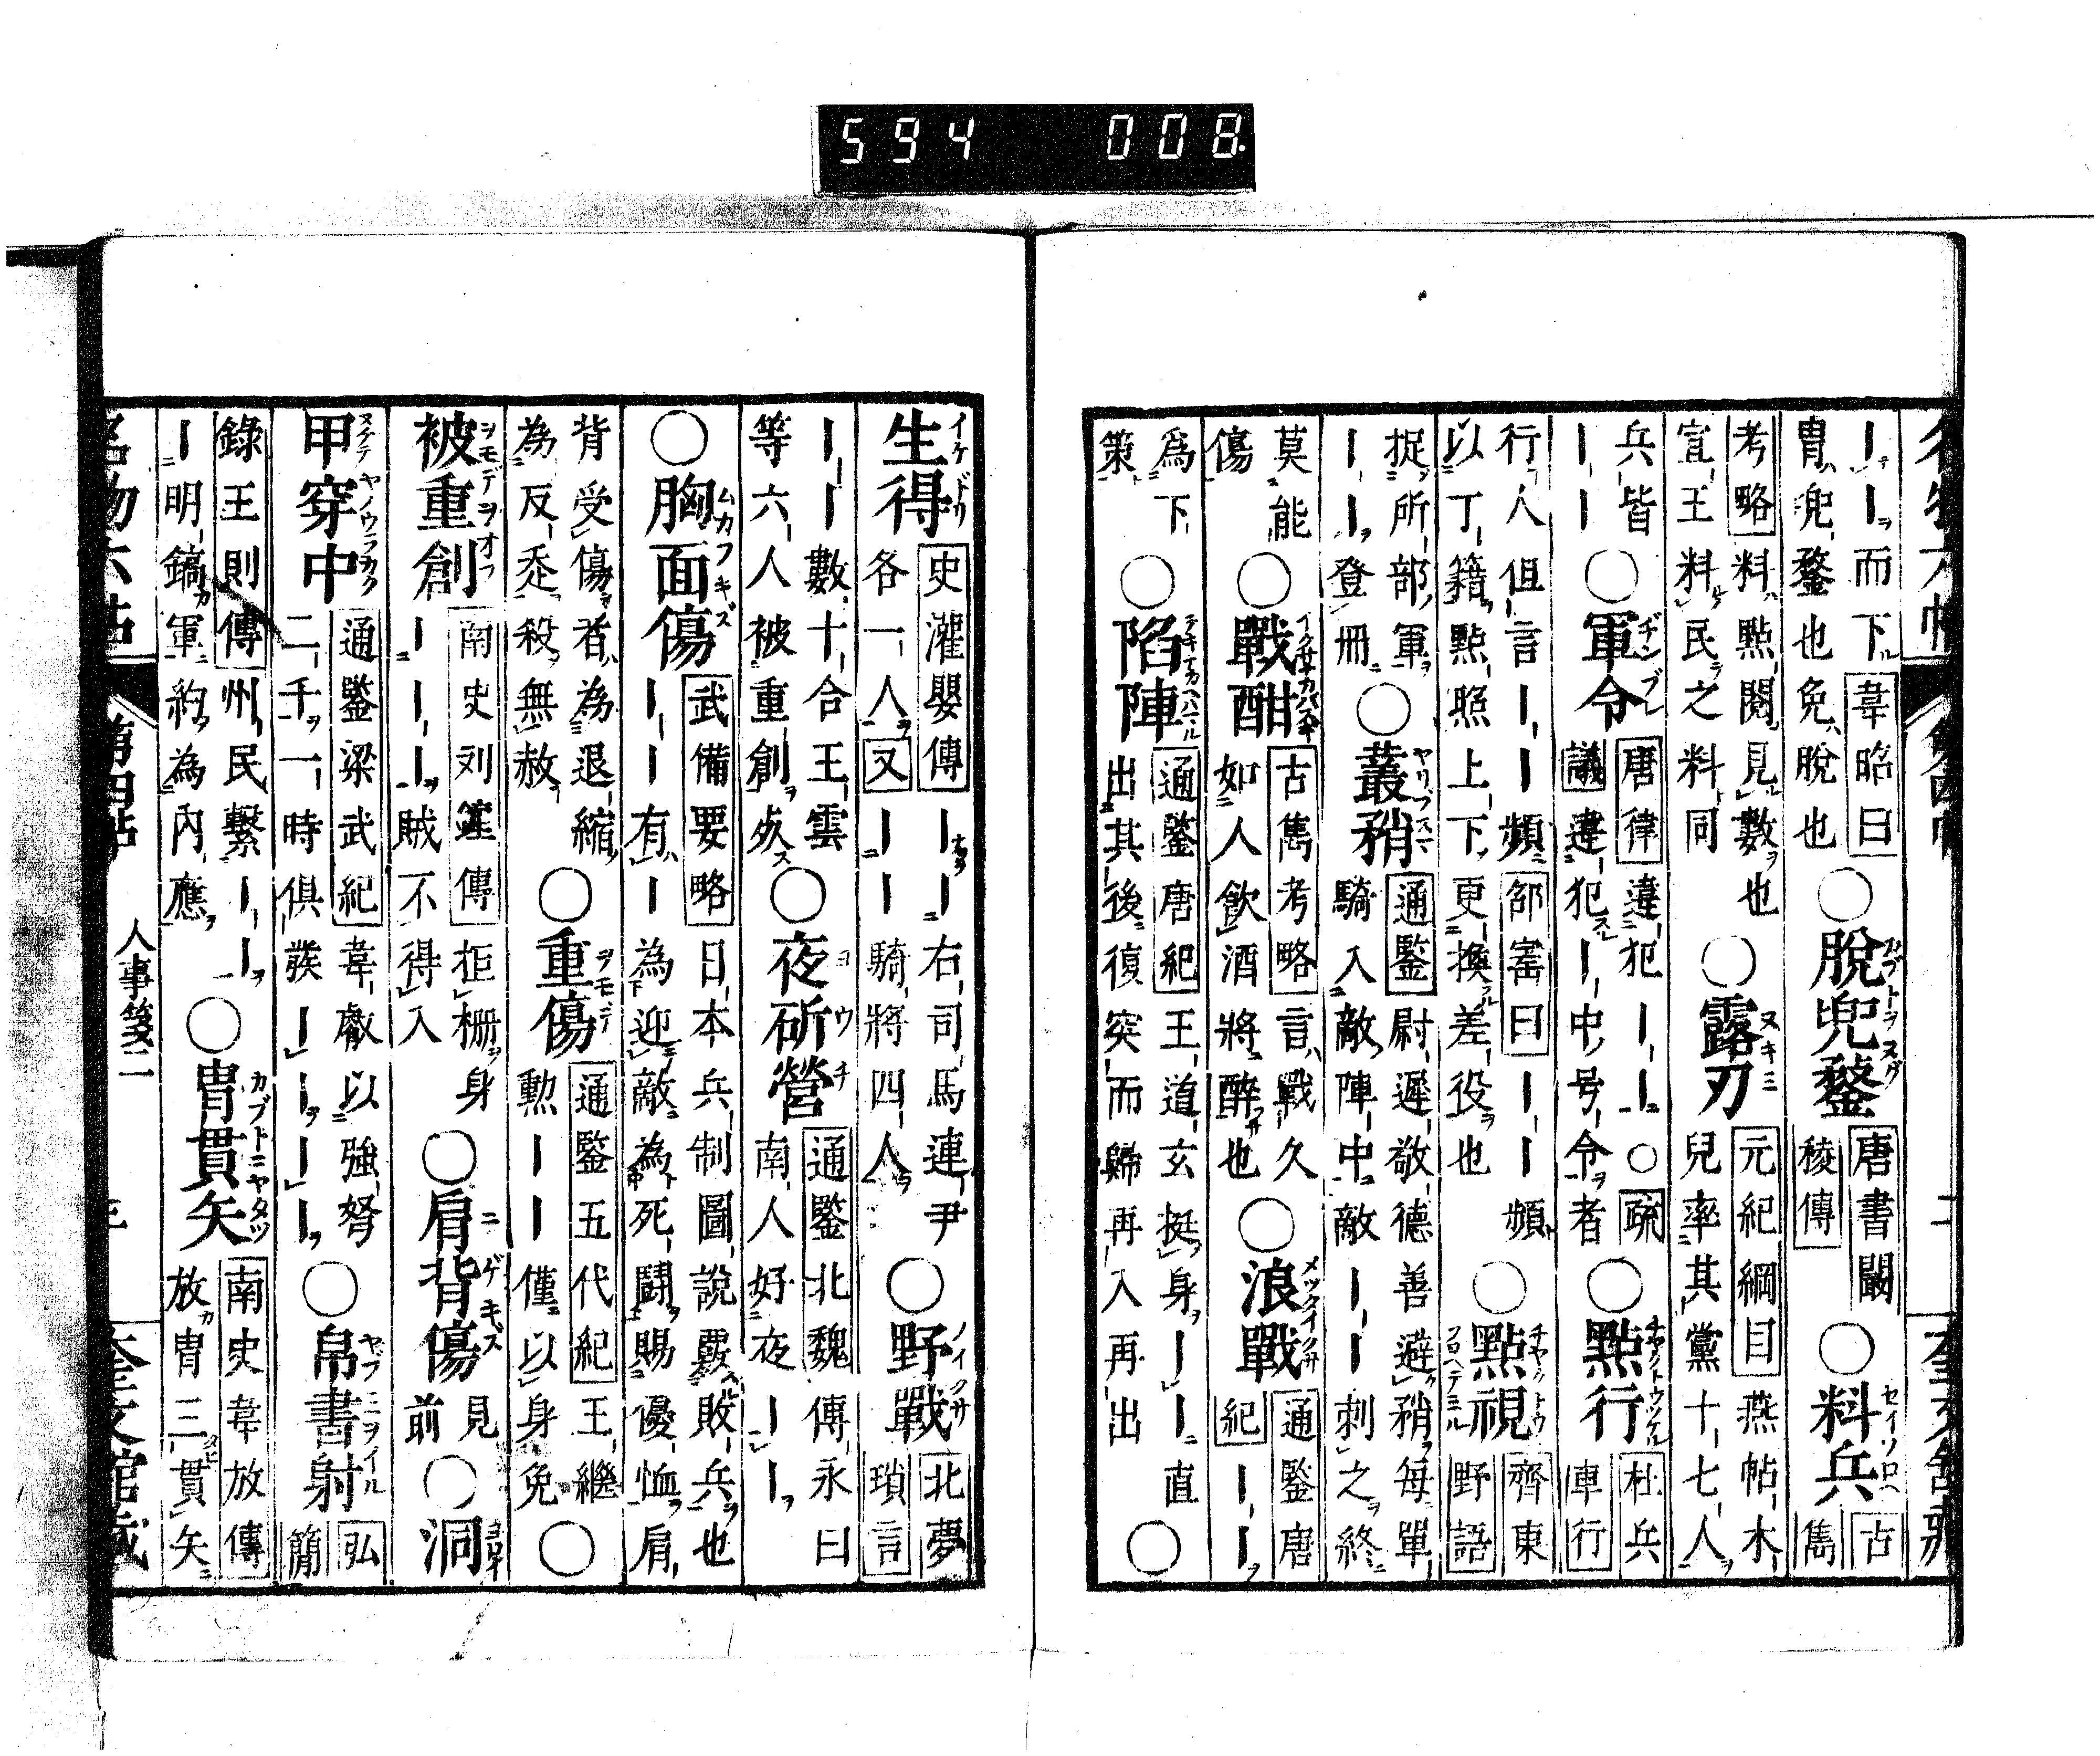 594 008
｜｜而下韋昭曰
冑兜鍪也免脫也
○脫兜鍪
唐書闞
稜傳
○料兵
古
雋
考略料點閱見數也
宣王料民之料同
○露刃
元紀綱目燕帖木
兒率其黨十七人
兵皆
｜｜
○軍令
唐律違犯｜｜○疏
議違犯｜中号令者
○點行
杜兵
車行
行人但言｜｜頻曰｜｜頻
以丁籍點照上下更換差役也
○點視
齊東
野語
捉所部軍
｜｜登冊
○叢矟
通鑑尉遲敬德善避矟每單
騎入敵陣中敵｜｜刺之終
莫能
傷
○戰酣
古雋考略言戰久
如人飲酒將醉也
○浪戰
通鑒唐
紀｜｜
爲下
策
○陷陣
通鑒唐紀王道玄挺身｜｜直
出其後復突而歸再入再出
○
生得
史灌嬰傳｜｜右司馬連尹
各一人又｜｜騎將四人
○野戰
北夢
瑣言
｜｜數十合王雲
等六人被重創歿
○夜斫營
通鑒北魏傳永曰
南人好夜｜｜
○胸面傷
武備要略日本兵制圖說覈敗兵也
｜｜有｜為迎敵為死鬪賜優恤肩
背受傷者為退縮
為反殺無赦
○重傷
通鑒五代紀王繼
勲｜｜僅以身免
○
被重創
南史刘傳拒柵身
｜｜｜賊不得入
○肩背傷
見
前
○洞
甲穿中
通鑒梁武紀韋叡以強弩
二千一時俱發｜｜｜｜
○帛書射
弘
簡
錄王則傳州民繫｜｜
｜明鎬軍約為內應
○冑貫矢
南史韋放傳
放冑三貫矢
名物六帖 第四帖 人事箋二 三 奎文館藏